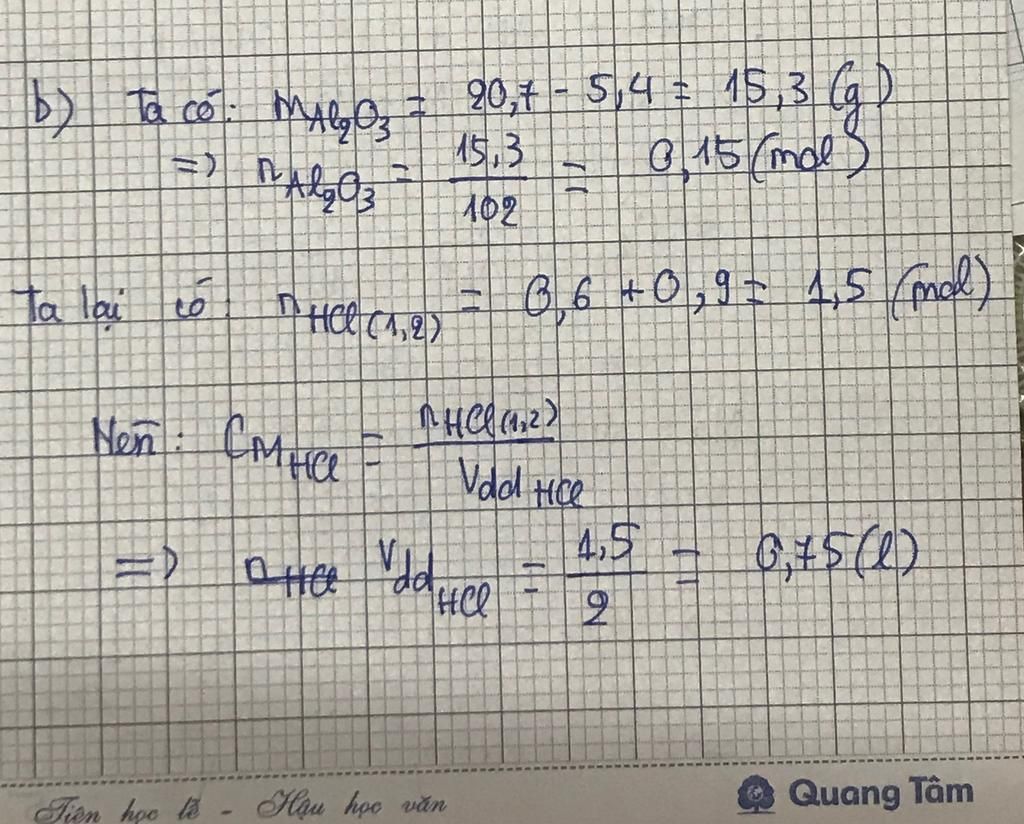 b) Ta có: mAl2O3 = 20,7 - 5,4 = 15,3 (g)
=> nAl2O3 = 15,3/102 = 0,15 (mol)
Ta lại có: nHCl(1,2) = 0,6 + 0,9 = 1,5 (mol)
Nên: CMHCl = nHCl(1,2)/VddHCl
=> nHCl VddHCl = 1,5/2 = 0,75 (l)
Tiên học lễ - Hậu học văn
Quang Tâm